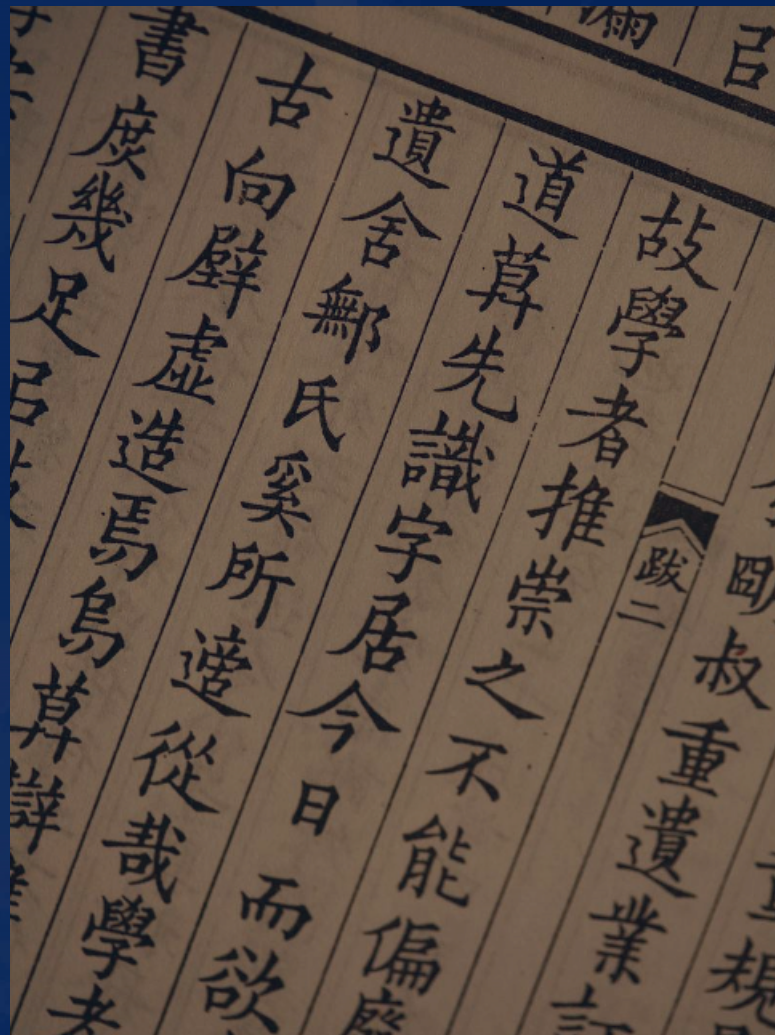 漏
㠯
重規
朙叔重遺業訂
跋二
故學者推崇之不能偏廢
道莫先識字居今日而欲
遺舍鄦氏奚所適從哉學者
古向壁虛造焉烏莫辯
書庶幾足㠯